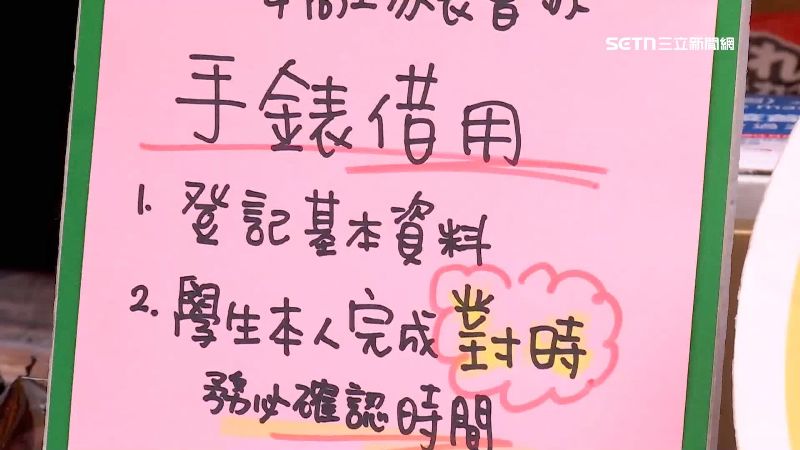 SETN三立新聞網
手錶借用
1. 登記基本資料
2. 學生本人完成對時
務必確認時間